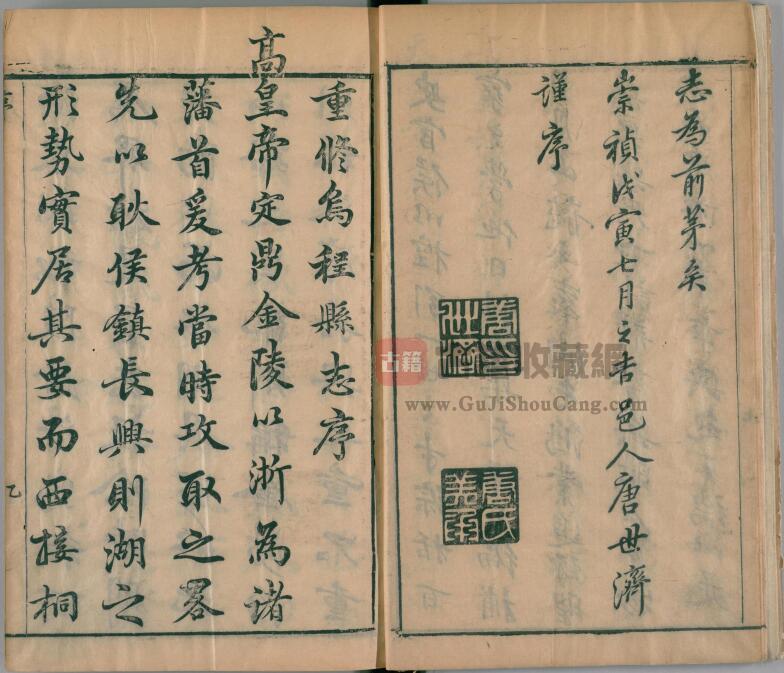 志為前茅矣
崇禎戊寅七月之吉邑人唐世濟
謹序
唐世濟印
唐氏美承
重修烏程縣志序
高皇帝定鼎金陵以浙為諸
藩首爰考當時攻取之畧
先以耿侯鎮長興則湖之
形勢實居其要而西接桐
古籍
收藏網
www.GuJiShouCang.com